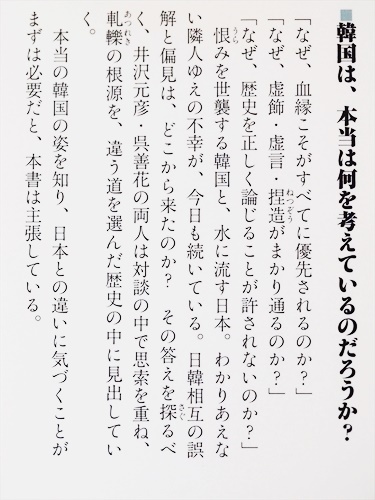 ■韓国は、本当は何を考えているのだろうか?
「なぜ、血縁こそがすべてに優先されるのか?」
「なぜ、虚飾・虚言・捏造がまかり通るのか?」
「なぜ、歴史を正しく論じることが許されないのか?」
恨みを世襲する韓国と、水に流す日本。わかりあえな
い隣人ゆえの不幸が、今日も続いている。日韓相互の誤
解と偏見は、どこから来たのか? その答えを探るべ
く、井沢元彦・呉善花の両人は対談の中で思索を重ね、
軋轢の根源を、違う道を選んだ歴史の中に見出してい
く。
本当の韓国の姿を知り、日本との違いに気づくことが
まずは必要だと、本書は主張している。